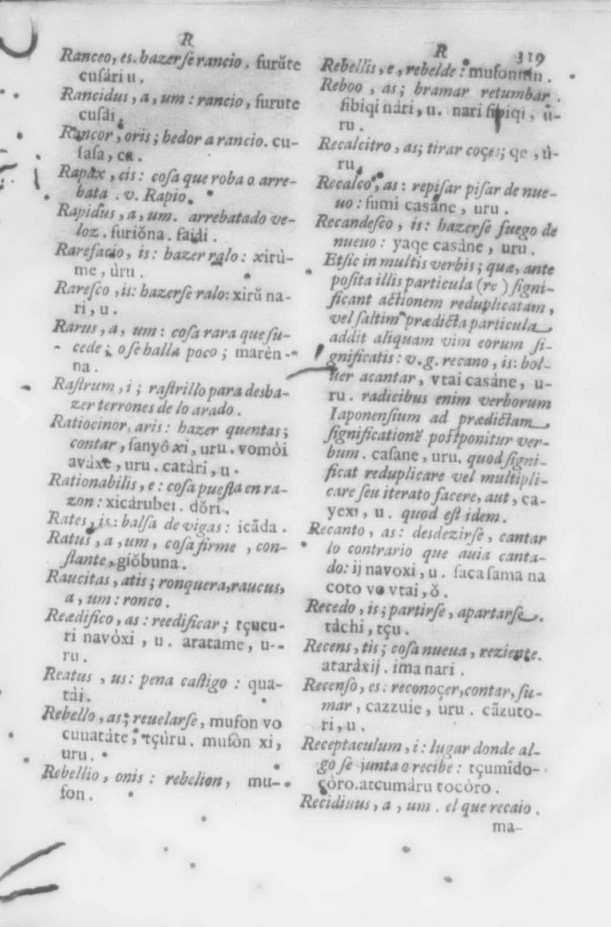 R
Ranceo, es. hazerſe rancio, furŭte
cuſári u.
Rancidus, a, um: rancio, furute
cuſái.
Rancor, oris; hedor a rancio. cu-
ſaſa, ca.
Rapax, cis: coſa que roba o arre-
bata. v. Rapio.
Rapidus, a, um. arrebatado ve-
loz. furiŏna. faiái.
Rarefacio, is: hazer ralo: xirù-
me, ùru.
Rareſco, is: hazerſe ralo: xirŭ na-
ri, u.
Rarus, a, um: coſa rara que ſu-
cede; o ſe halla poco; marèn-
na.
Raſtrum, i; raſtrillo para desha-
zer terrones de lo arado.
Ratiocinor, aris: hazer quentas;
contar, ſanyô xi, uru. vomòi
avàxe, uru. catàri, u.
Rationabilis, e: coſa pueſta en ra-
zon: xicárubei. dŏri.
Rates, is: balſa de vigas: icãda.
Ratus, a, um, coſa firme, con-
ſtante, giŏbuna.
Raucitas, atis; ronquera, raucus,
a, um: ronco.
Reædifico, as: reedificar; tçucu-
ri navòxi, u. aratame, u-
ru.
Reatus, us: pena caſtigo: qua-
tái.
Rebello, as; reuelarſe, muſon vo
cuuatáte, tçùru. muſòn xi,
uru.
Rebellio, onis: rebelion, mu-
ſon.
R 319
Rebellis, e, rebelde: muſonnin.
Reboo, as; bramar retumbar.
fibiqi nári, u. nari fibiqi, ù-
ru.
Recalcitro, as; tirar coçes; qe, ù-
ru.
Recalco, as: repiſar piſar de nue-
uo: fumi caſáne, uru.
Recandeſco, is: hazerſe fuego de
nueuo: yaqe caſàne, uru.
Etſic in multis verbis; quæ, ante
poſita illis particula (re) ſigni-
ficant actionem reduplicatam,
vel ſaltim prædicta particula
addit aliquam vim eorum ſi-
gnificatis: v.g. recano, is: bol-
uer acantar, vtai caſàne, u-
ru. radicibus enim verborum
Iaponenſium ad prædictam
ſignificationẽ poſtponitur ver-
bum. caſane, uru. quod ſigni-
ficat reduplicare vel multipli-
care ſeu iterato facere, aut, ca-
yexi, u. quod eſt idem.
Recanto, as: desdezirſe, cantar
lo contrario que auia canta-
do: ij navoxi, u. ſacaſama na
coto vo vtai, ŏ.
Recedo, is; partirſe, apartarſe.
tàchi, tçu.
Recens, tis; coſa nueua, reziente.
ataràxij. ima nari.
Recenſo, es: reconoçer, contar, ſu-
mar, cazzuie, uru. cãzuto-
ri, u.
Receptaculum, i: lugar donde al-
go ſe junta o recibe: tçumĩdo-
còro. atcumáru tocòro.
Recidiuus, a, um. el que recaio.
ma-